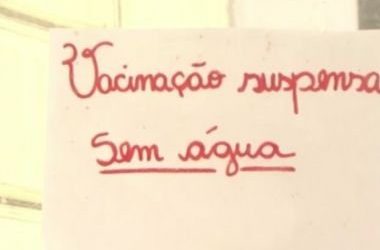 Vacinação suspensa
Sem água